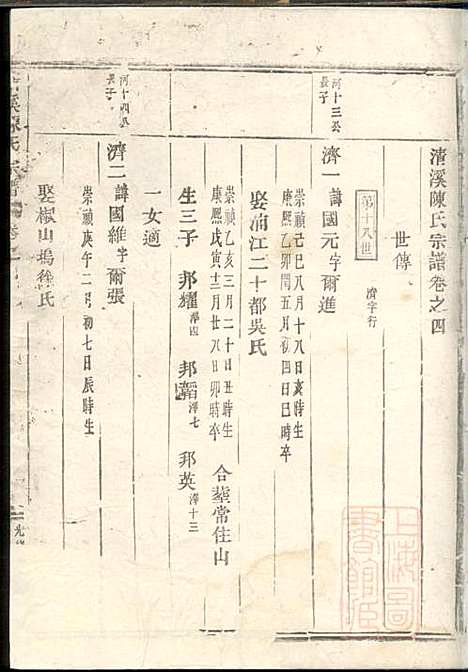 清溪陳氏宗譜卷之四
世傳
第十八世
濟字行
河十三公
長子
濟一 諱國元字爾進
崇禎己巳八月十八日亥時生
康熙乙卯閏五月初四日巳時卒
娶浦江二十都吳氏
崇禎乙亥三月二十日丑時生
康熙戊寅十二月廿八日卯時卒
合塟常住山
生三子 邦耀澤四 邦韜澤七 邦英澤十三
一女適
河十四公
長子
濟二 諱國維字爾張
崇禎庚午二月初七日辰時生
娶椒山塢徐氏
清溪陳氏宗譜
上海圖書館藏